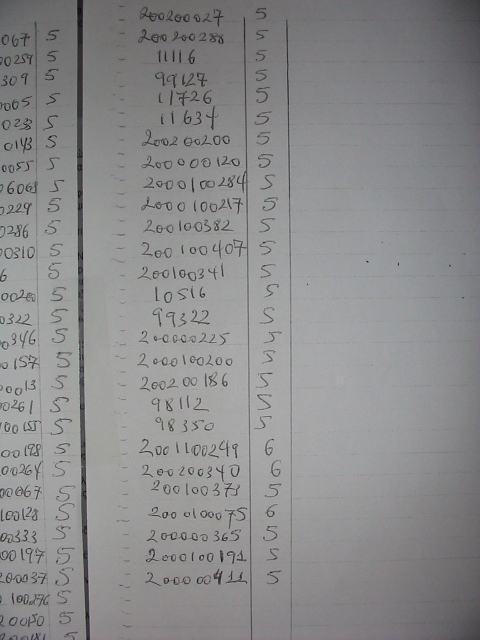 067 5
00259 5
309 5
0065 5
0233 5
0143 5
0055 5
06068 5
0229 5
0286 5
00310 5
6 5
00260 5
0322 5
0346 5
00157 5
00013 5
00261 5
100155 5
00198 5
00264 5
00067 5
100128 5
00333 5
00197 5
200037 5
100276 5
200150 5
5
200200027 5
200200288 5
11116 5
99127 5
11726 5
11634 5
200200200 5
200000120 5
2000100284 5
2000100217 5
200100382 5
200100407 5
200100341 5
10516 5
99322 5
200000225 5
2000100200 5
200200186 5
98112 5
98350 5
2001100249 6
200200340 6
200100373 5
2000100075 6
200000365 5
2000100191 5
200000411 5